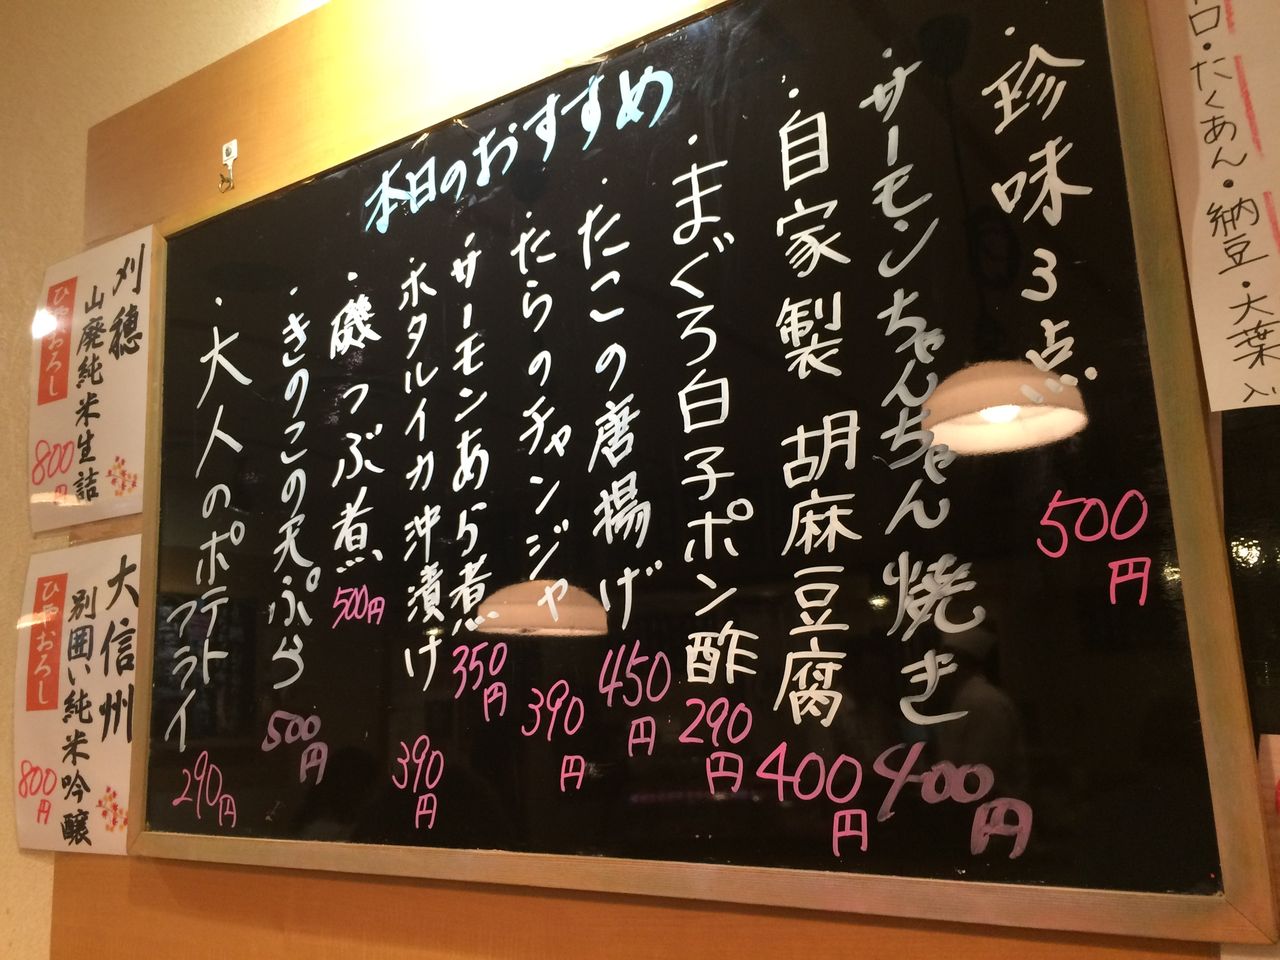 本日のおすすめ
・珍味3点 500円
・サーモンちゃんちゃん焼き 400円
・自家製 胡麻豆腐 400円
・まぐろ白子ポン酢 290円
・たこの唐揚げ 450円
・たらのチャンジャ 390円
・サーモンあら煮 350円
・ホタルイカ沖漬け 390円
・磯つぶ煮 500円
・きのこの天ぷら 500円
・大人のポテトフライ 290円
刈穂
山廃純米生詰
ひやおろし
800円
大信州
別囲い純米吟醸
ひやおろし
800円
ロ・たくあん・納豆・大葉入